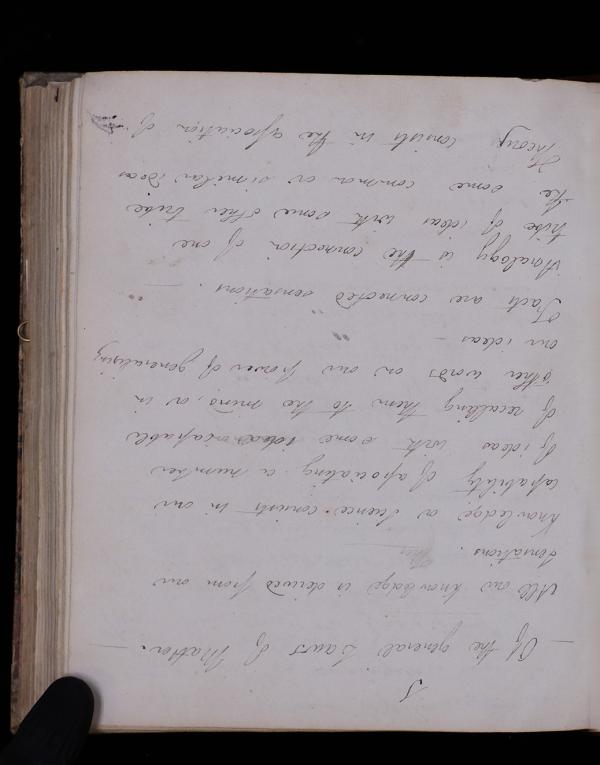 5
Of the general Laws of Matter.
All our knowledge is derived from our
sensations.
Knowledge or science consists in our
capability of associating a number
of ideas with some ideas capable
of recalling them to the mind, or in
other words on our power of generalising
our ideas —
Facts are connected sensations. —
Analogy is the connection of one
tribe of ideas with some other tribe
the some common or similar ideas
Theory consists in the association of